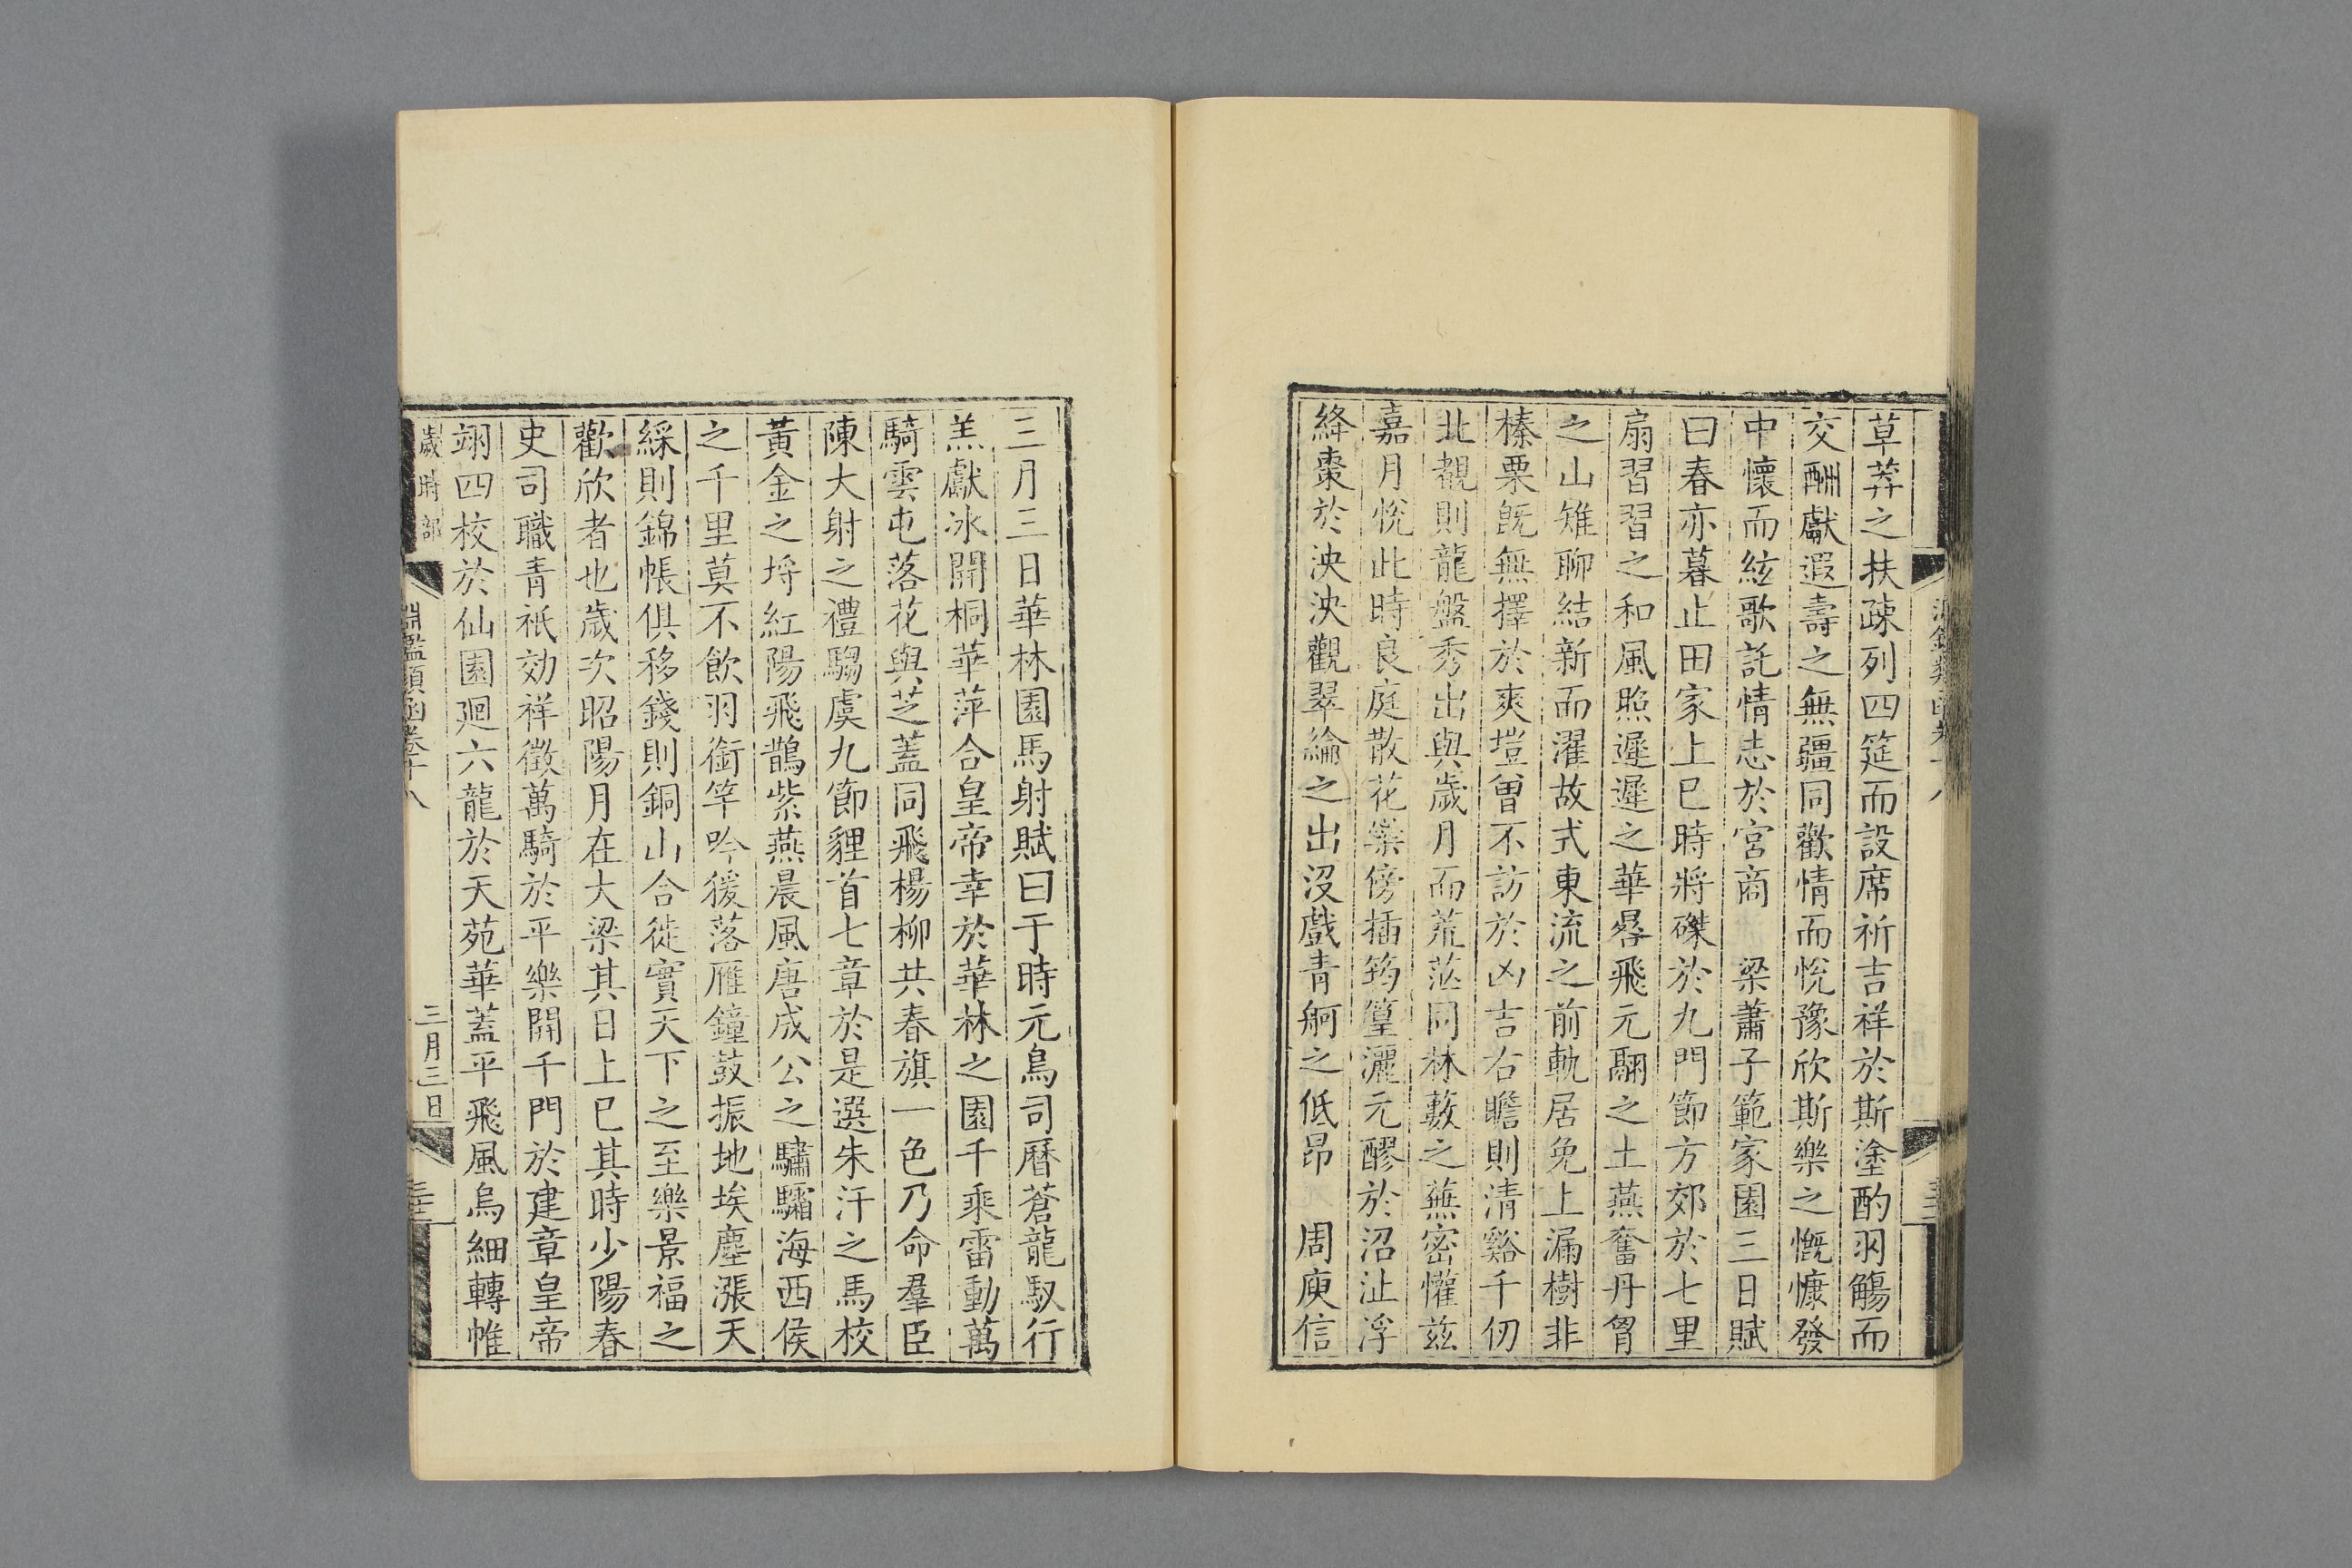 草莽之扶疎列四筵而設席祈吉祥於斯塗酌羽觴而
交酬獻遐壽之無疆同歡情而悅豫欣斯樂之慨慷發
中懷而絃歌託情志於宮商 梁蕭子範家園三日賦
曰春亦暮止田家上巳時將磔於九門節方郊於七里
扇習習之和風照遲遲之華晷飛元駟之土燕奮丹胷
之山雉聊結新而濯故式東流之前軌居免上漏樹非
榛栗旣無擇於爽塏曾不訪於凶吉右瞻則清谿千仞
北覩則龍盤秀出與歲月而荒茫同林藪之蕪密懽茲
嘉月悅此時良庭散花蘂傍插筠篁灑元醪於沼沚浮
絳棗於泱泱觀翠綸之出沒戲青舸之低昂 周庾信
三月三日華林園馬射賦曰于時元鳥司曆蒼龍馭行
羔獻冰開桐華萍合皇帝幸於華林之園千乘雷動萬
騎雲屯落花與芝蓋同飛楊柳共春旗一色乃命羣臣
陳大射之禮騶虞九節貍首七章於是選朱汗之馬校
黃金之埒紅陽飛鵲紫燕晨風唐成公之驌驦海西侯
之千里莫不飲羽銜竿吟猨落雁鐘鼓振地埃塵漲天
綵則錦帳俱移錢則銅山合徙實天下之至樂景福之
歡欣者也歲次昭陽月在大梁其日上巳其時少陽春
史司職青祇効祥徵萬騎於平樂開千門於建章皇帝
翊四校於仙園廻六龍於天苑華蓋平飛風烏細轉帷
歲時部
淵鑑類函卷十八
三月三日